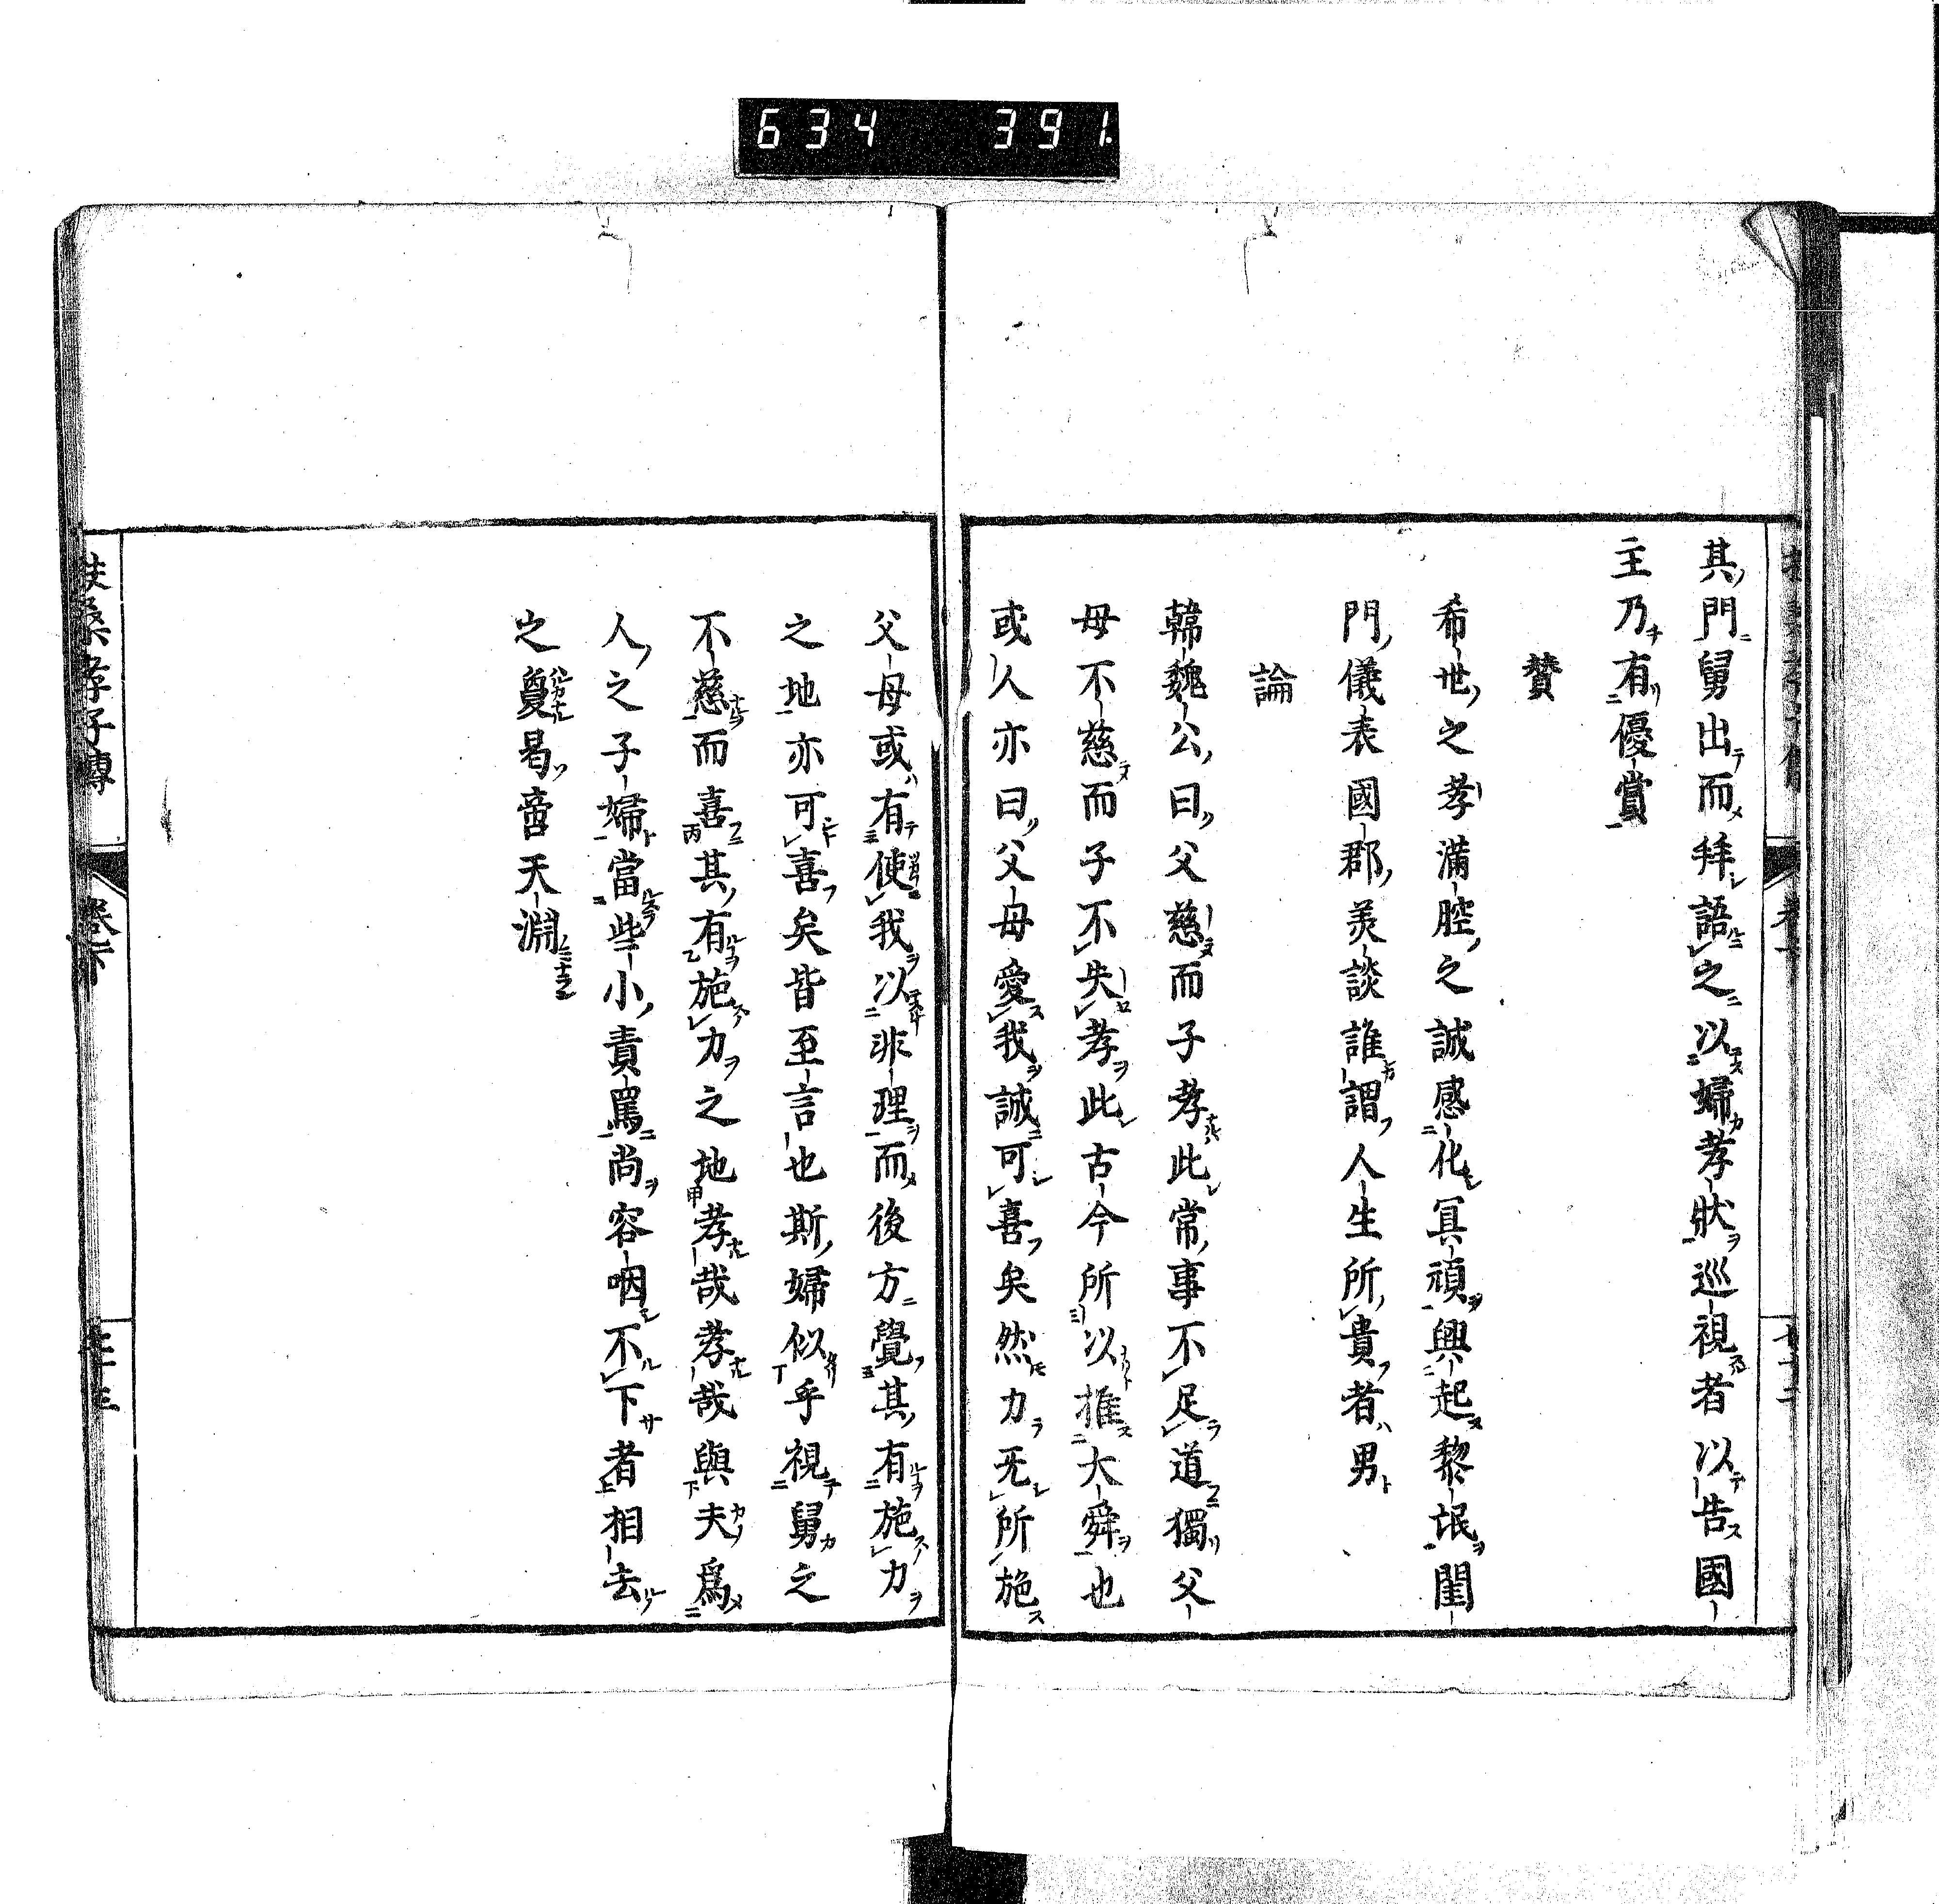 634 391
其門舅出而拜語之以婦孝狀巡視者以告國
主乃有優賞
贊
希世之孝滿腔之誠感化冥頑興起黎氓閨
門儀表國郡美談誰謂人生所貴者男
論
韓魏公曰父慈而子孝此常事不足道獨父
母不慈而子不失孝此古今所以推大舜也
或人亦曰父母愛我誠可喜矣然力无所施
父母或有使我以非理而後方覺其有施力
之地亦可喜矣皆至言也斯婦似乎視舅之
不慈而喜其有施力之地孝哉孝哉與夫爲
人之子婦當些小責罵尚容咽不下者相去
之夐曷啻天淵
扶桑孝子傳
卷下